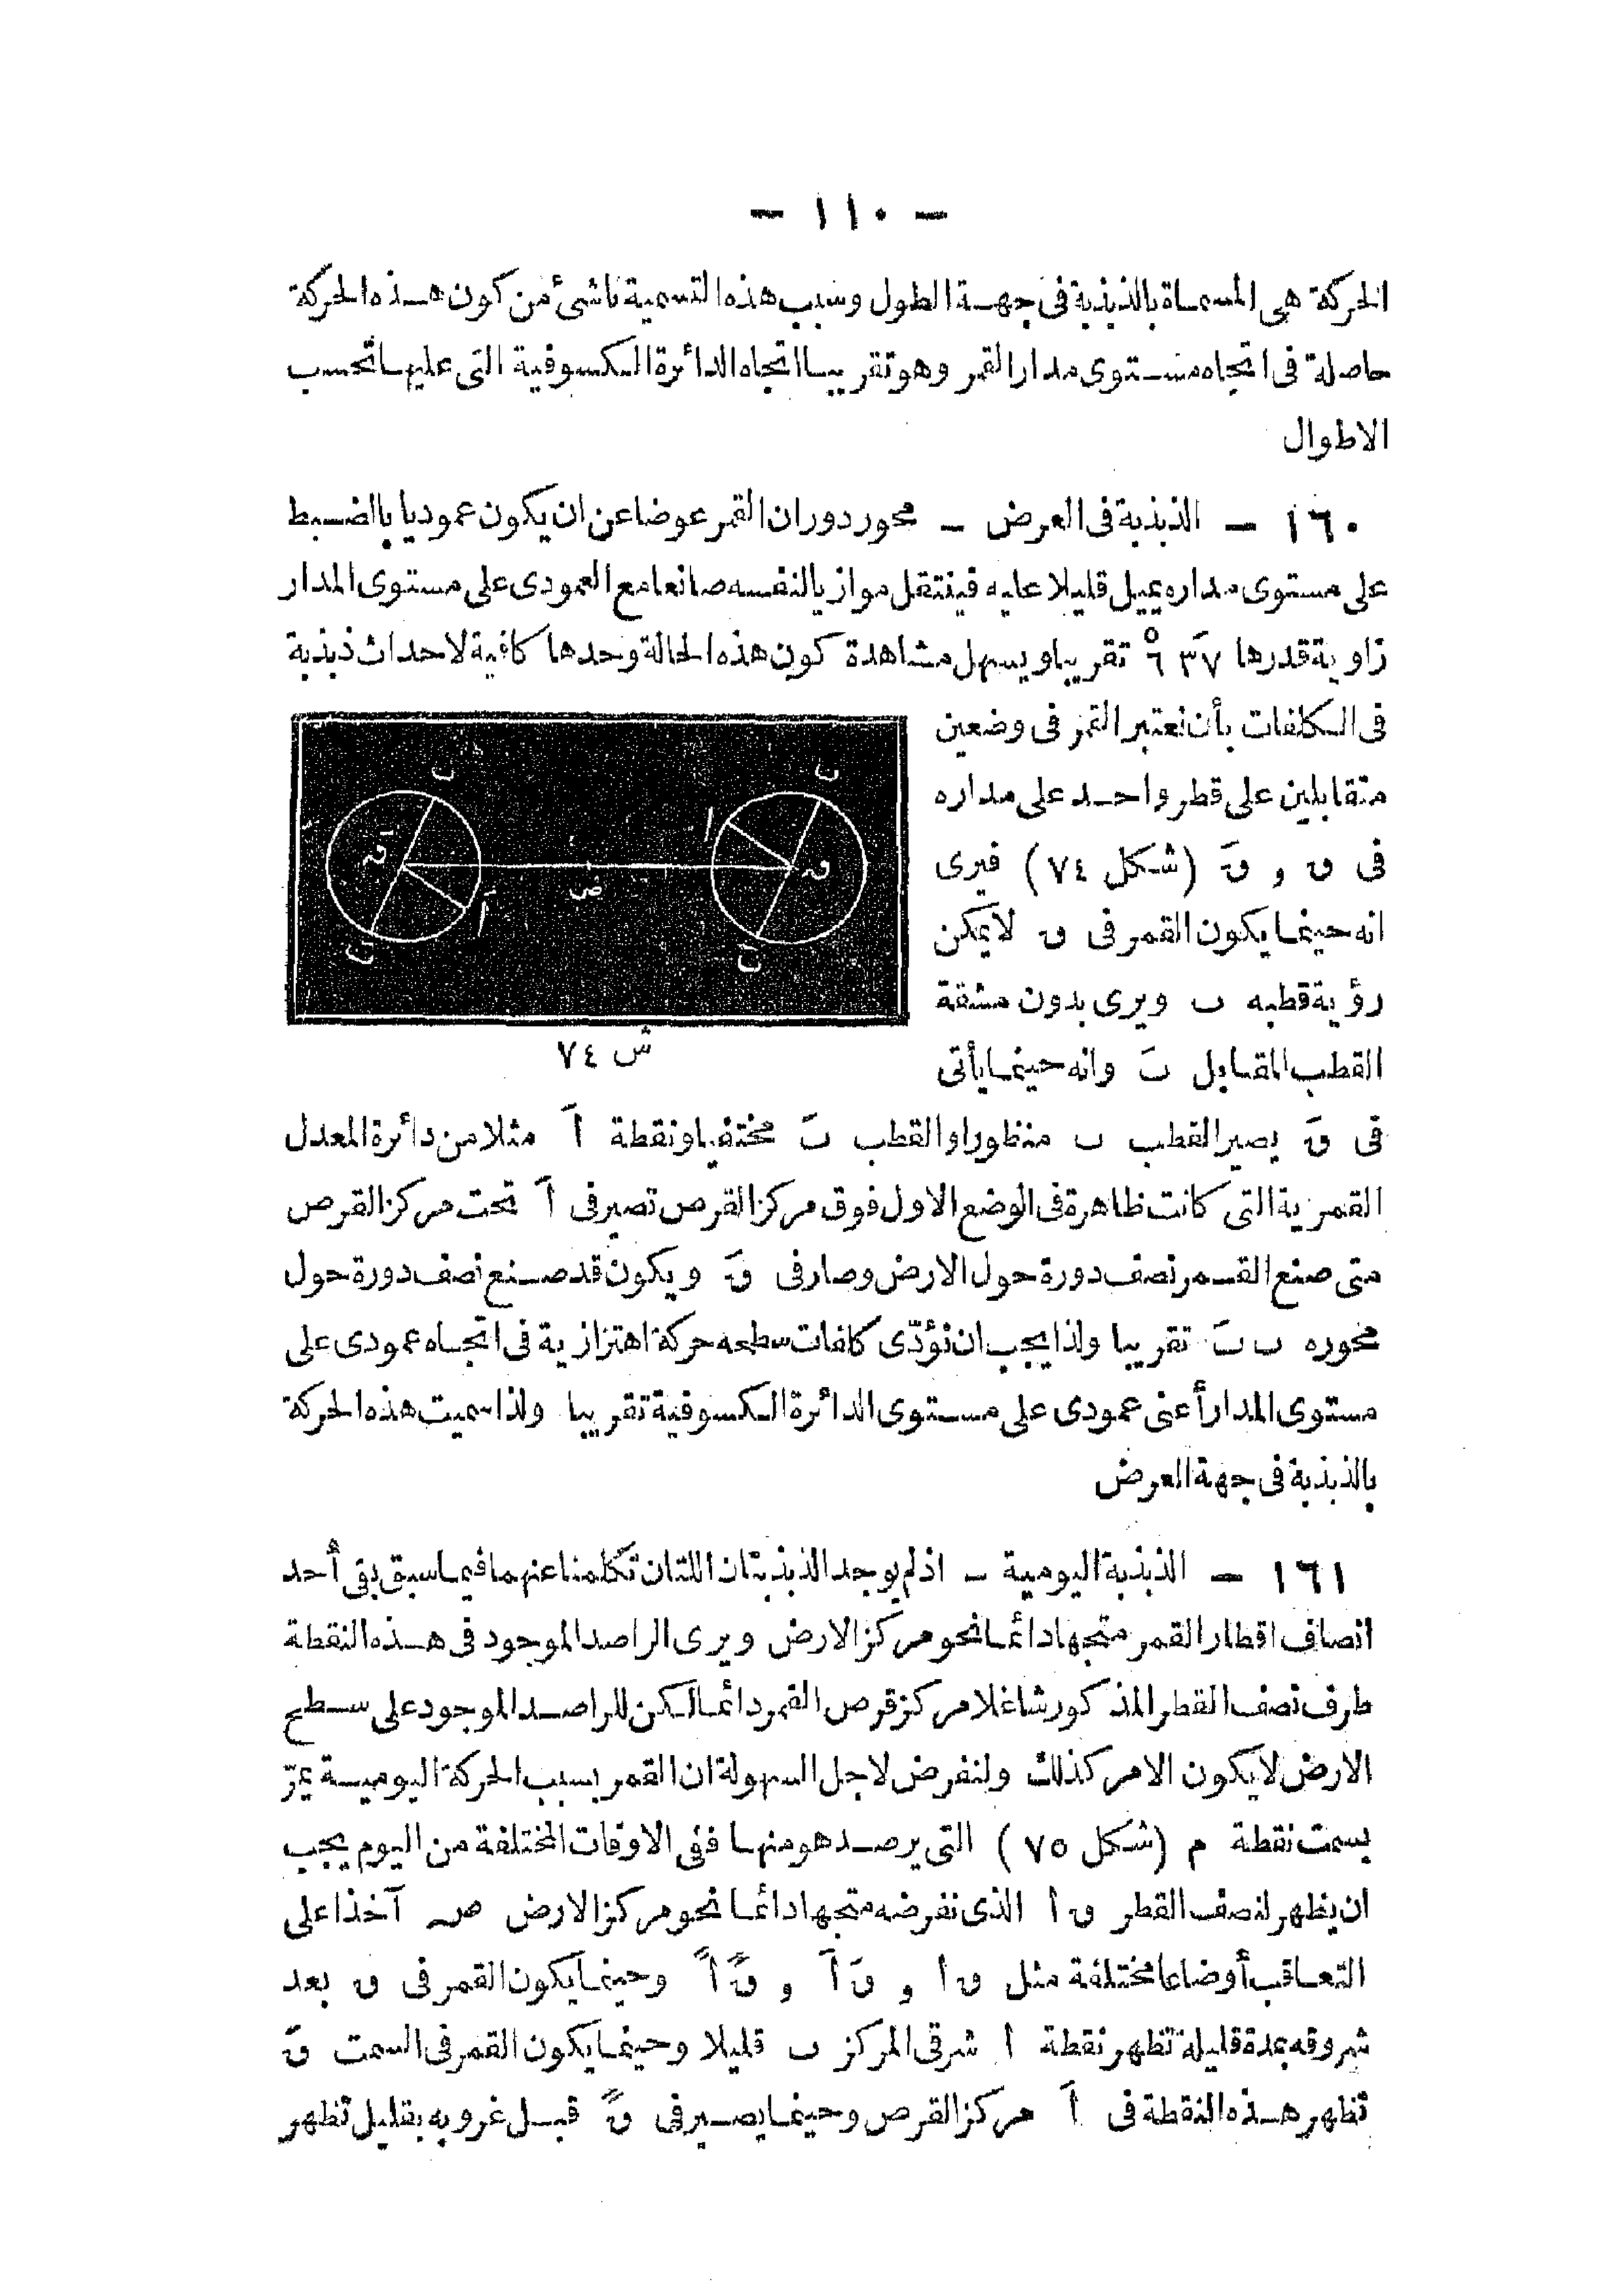 — ١١٠ —
الحركة هى المسماة بالذبذبة فى جهة الطول وسبب هذه التسمية ناشئ من كون هذه الحركة
حاصلة فى اتجاه مستوى مدار القمر وهو تقريبا اتجاه الدائرة الكسوفية التى عليها تحسب
الاطوال
١٦٠ — الذبذبة فى العرض — محور دوران القمر عوضا عن ان يكون عموديا بالضبط
على مستوى مداره يميل قليلا عليه فينتقل موازيا لنفسه صانعا مع العمودى على مستوى المدار
زاوية قدرها ٣٧َ ٦ْ تقريبا ويسهل مشاهدة كون هذه الحالة وحدها كافية لاحداث ذبذبة
فى الكلفات بأن نعتبر القمر فى وضعين
متقابلين على قطر واحد على مداره
فى ق و قَ (شكل ٧٤) فيرى
انه حينما يكون القمر فى ق لا يمكن
رؤية قطبه ب ويرى بدون مشقة
القطب المقابل بَ وانه حينما يأتى
ب ب ا ق قَ ض اَ بَ بَ
ش ٧٤
فى قَ يصير القطب ب منظورا والقطب بَ مختفيا ونقطة اَ مثلا من دائرة المعدل
القمرية التى كانت ظاهرة فى الوضع الاول فوق مركز القرص تصير فى اَ تحت مركز القرص
متى صنع القمر نصف دورة حول الارض وصار فى قَ ويكون قد صنع نصف دورة حول
محوره ب بَ تقريبا ولذا يجب ان تؤدّى كلفات سطحه حركة اهتزازية فى اتجاه عمودى على
مستوى المدار أعنى عمودى على مستوى الدائرة الكسوفية تقريبا ولذا سميت هذه الحركة
بالذبذبة فى جهة العرض
١٦١ — الذبذبة اليومية — اذ لم يوجد الذبذبتان اللتان تكلمنا عنهما فيما سبق بقى أحد
انصاف اقطار القمر متجها دائما نحو مركز الارض ويرى الراصد الموجود فى هذه النقطة
طرف نصف القطر المذكور شاغلا مركز قرص القمر دائما لكن للراصد الموجود على سطح
الارض لا يكون الامر كذلك ولنفرض لاجل السهولة ان القمر بسبب الحركة اليومية يمرّ
بسمت نقطة م (شكل ٧٥) التى يرصد هو منها ففى الاوقات المختلفة من اليوم يجب
ان يظهر لنصف القطر ق ا الذى نفرضه متجها دائما نحو مركز الارض ص آخذا على
التعاقب أوضاعا مختلفة مثل ق ا و قَ اَ و قً اً وحينما يكون القمر فى ق بعد
شروقه بمدة قليلة تظهر نقطة ا شرقى المركز ب قليلا وحينما يكون القمر فى السمت قَ
تظهر هذه النقطة فى اَ مركز القرص وحينما يصير فى قً قبل غروبه بقليل تظهر